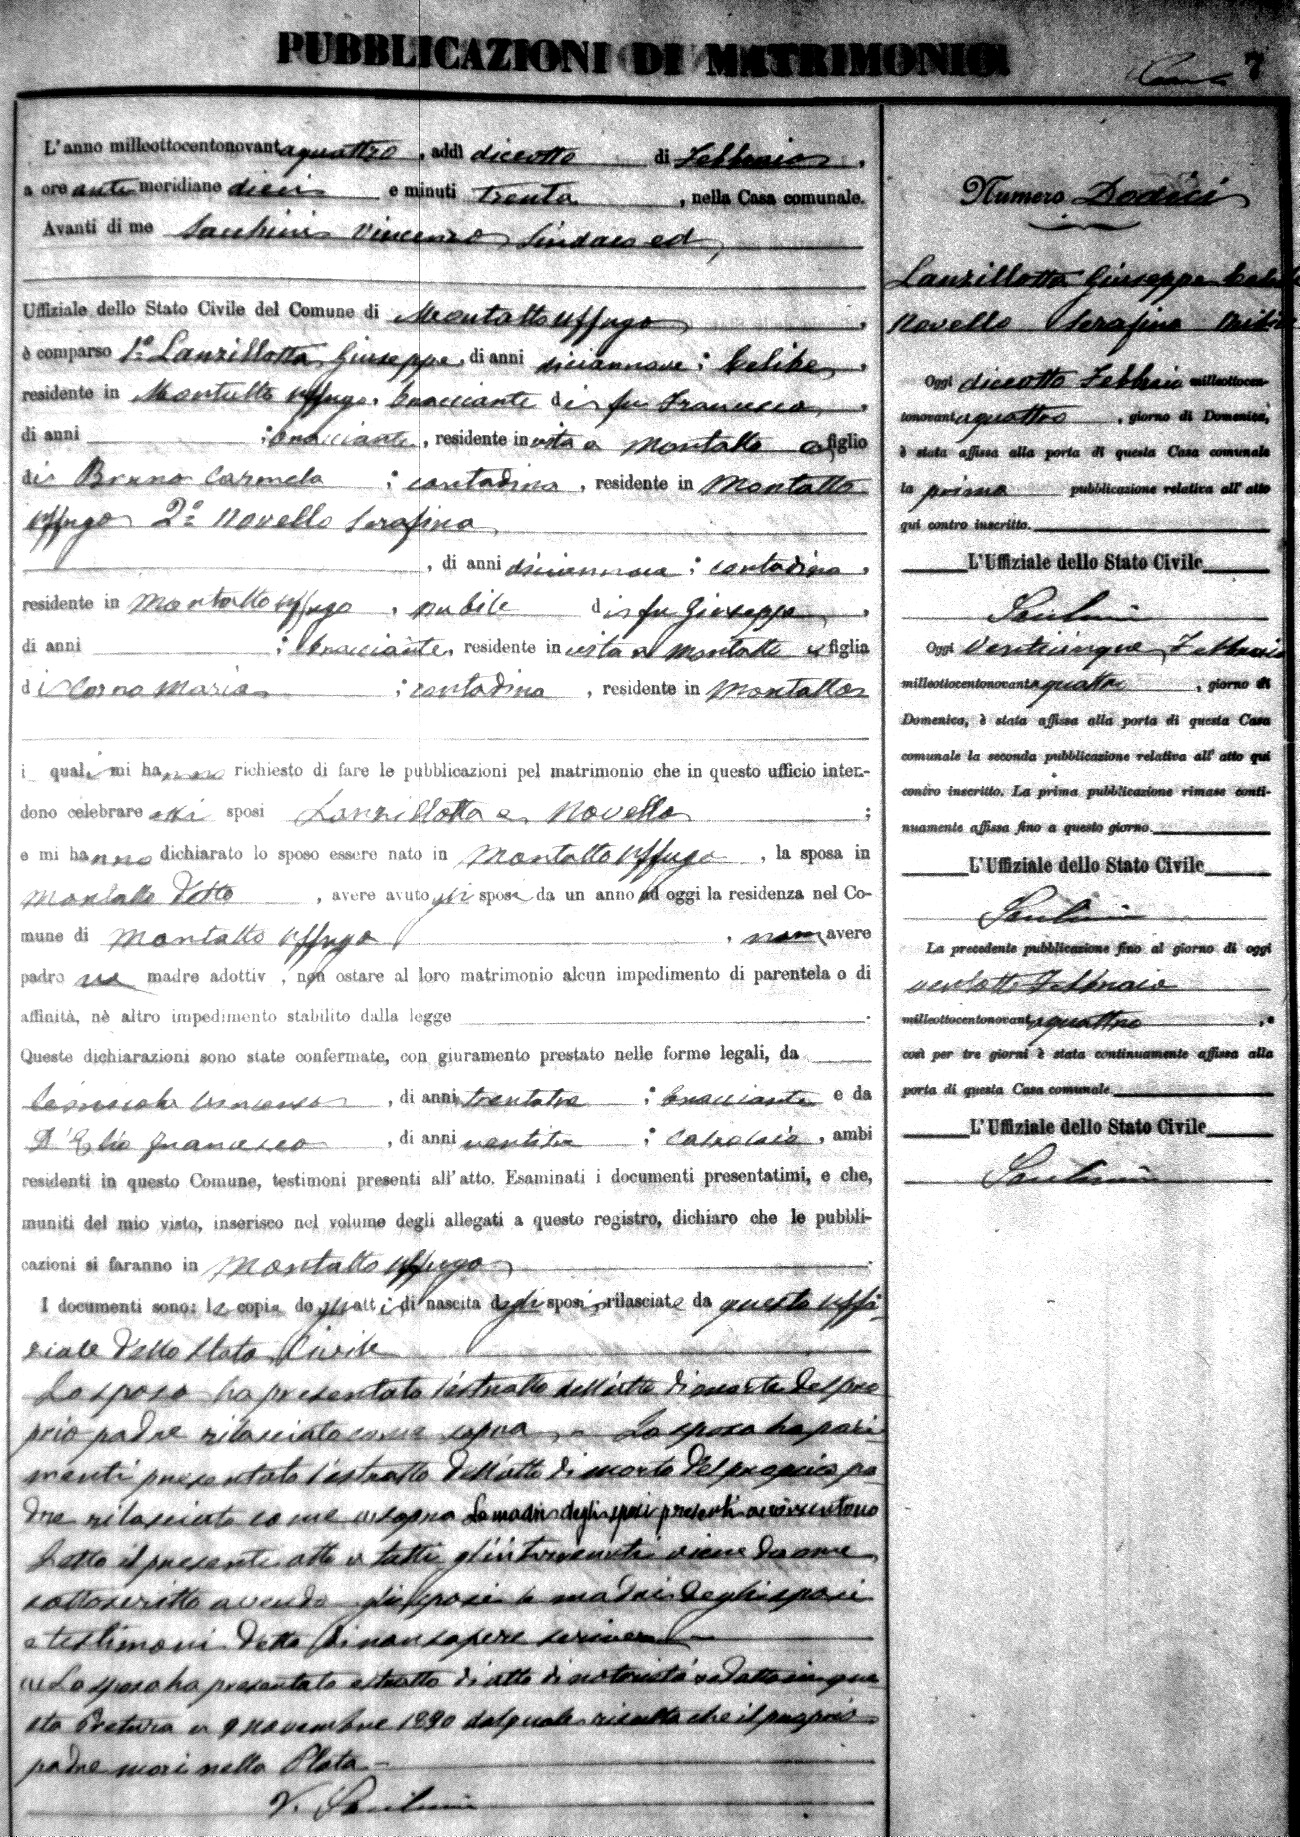 PUBBLICAZIONI DI MATRIMONIO.
7
L'anno milleottocentonovantaquattro, addì diciotto di Febbraio,
a ore antimeridiane dieci e minuti trenta, nella Casa comunale.
Avanti di me Vincenzo Sindaco ed
Uffiziale dello Stato Civile del Comune di Montalto Uffugo,
è comparso 1º Lanzillotta Giuseppe, di anni diciannove; Celibe,
residente in Montalto Uffugo, bracciante di fu Francesco,
di anni ; bracciante, residente in vita a Montalto e figlio
di Bruno Carmela ; contadina, residente in Montalto
Uffugo 2º Novello Serafina
, di anni diciannove; contadina,
residente in Montalto Uffugo, nubile di fu Giuseppe,
di anni ; bracciante, residente in vita a Montalto e figlia
di Maria ; contadina, residente in Montalto
i quali mi hanno richiesto di fare le pubblicazioni pel matrimonio che in questo ufficio inten-
dono celebrare essi sposi Lanzillotta e Novello ;
e mi hanno dichiarato lo sposo essere nato in Montalto Uffugo, la sposa in
Montalto detto, avere avuto gli sposi da un anno ad oggi la residenza nel Co-
mune di Montalto Uffugo, non avere
padre nè madre adottiv , non ostare al loro matrimonio alcun impedimento di parentela o di
affinità, nè altro impedimento stabilito dalla legge .
Queste dichiarazioni sono state confermate, con giuramento prestato nelle forme legali, da
, di anni trentatre ; bracciante e da
D'Elia Francesco, di anni ventitre ; Calzolaio, ambi
residenti in questo Comune, testimoni presenti all'atto. Esaminati i documenti presentatimi, e che,
muniti del mio visto, inserisco nel volume degli allegati a questo registro, dichiaro che le pubbli-
cazioni si faranno in Montalto Uffugo .
I documenti sono: le copie degli atti di nascita degli sposi rilasciate da questo uffi-
ziale dello Stato Civile
Lo sposo ha presentato l'estratto dell'atto di morte del pro
prio padre rilasciato come sopra La sposa ha pari-
menti presentato l'estratto dell'atto di morte del proprio pa
dre rilasciato come sopra Le madri degli sposi presenti acconsentono
Letto il presente atto a tutti gl'intervenuti viene da me
sottoscritto avendo gli sposi le madri degli sposi
e testimoni detto di non sapere scrivere
La sposa ha presentato estratto di atto di notorietà in que
sta Pretura 9 novembre 1890 dal quale risulta che il proprio
padre morì nella Plata
V.
Numero Dodici
Lanzillotta Giuseppe Celibe
Novello Serafina Nubile
Oggi diciotto Febbraio milleottocen-
tonovantaquattro, giorno di Domenica,
è stata affissa alla porta di questa Casa comunale
la prima pubblicazione relativa all'atto
qui contro inscritto.
L'Uffiziale dello Stato Civile
Oggi venticinque Febbraio
milleottocentonovantaquattro, giorno di
Domenica, è stata affissa alla porta di questa Casa
comunale la seconda pubblicazione relativa all'atto qui
contro inscritto. La prima pubblicazione rimase conti-
nuamente affissa fino a questo giorno.
L'Uffiziale dello Stato Civile
La precedente pubblicazione fino al giorno di oggi
ventotto Febbraio
milleottocentonovantaquattro, e
così per tre giorni è stata continuamente affissa alla
porta di questa Casa comunale
L'Uffiziale dello Stato Civile